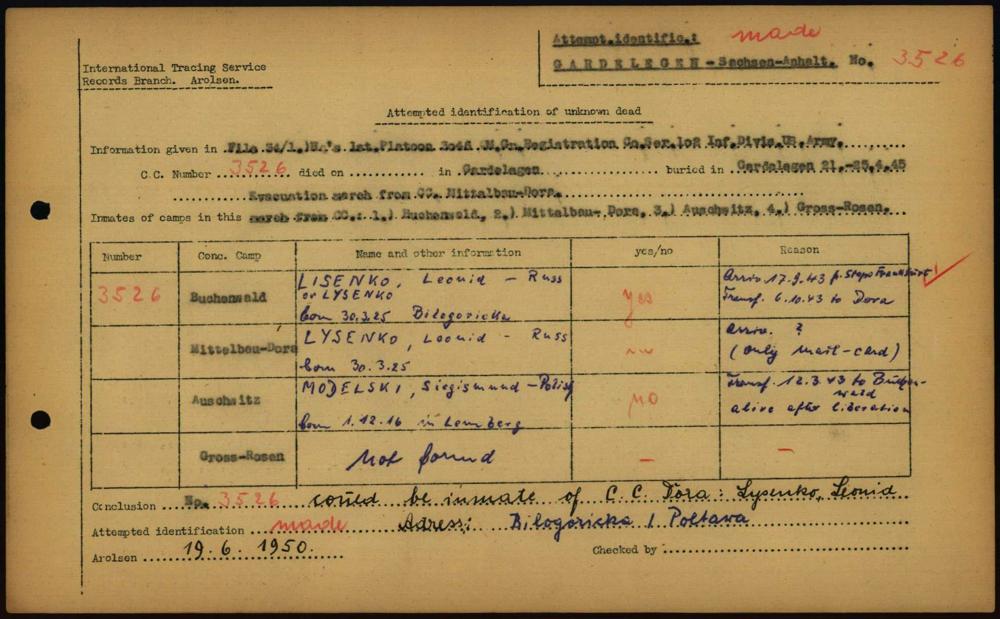 Attempt.identific.: made
GARDELEGEN - Sachsen-Anhalt. No. 3526
International Tracing Service
Records Branch. Arolsen.
Attempted identification of unknown dead
Information given in File 34/1.) Hq's 1st.Platoon 3046 .Gr.Registration Co.Ser.102 Inf.Divis.US.Army.
C.C. Number 3526 died on ............ in Gardelegen ............ buried in Gardelegen 21.-25.4.45
Evacuation march from CC. Mittelbau-Dora.
Inmates of camps in this march from CC.: 1.) Buchenwald, 2.) Mittelbau- Dora, 3.) Auschwitz, 4.) Gross-Rosen.
Number Conc. Camp Name and other information yes/no Reason
3526 Buchenwald LISENKO, Leonid - Russ yes Arriv. 17.9.43 f. Stapo Frankfurt
or LYSENKO Transf. 6.10.43 to Dora
born 30.3.25 Bilogoricka
Mittelbau-Dora LYSENKO, Leonid - Russ arriv. ?
born 30.3.25 (only mail-card)
Auschwitz MODELSKI, Siegismund - Polish no Transf. 12.3.43 to Buchenwald
born 1.12.16 in Lemberg alive after liberation
Gross-Rosen Not found - -
Conclusion No. 3526 could be inmate of C.C. Dora: Lysenko, Leonid
Attempted identification made Adress: Bilogoricka / Poltawa
Arolsen 19.6.1950. Checked by